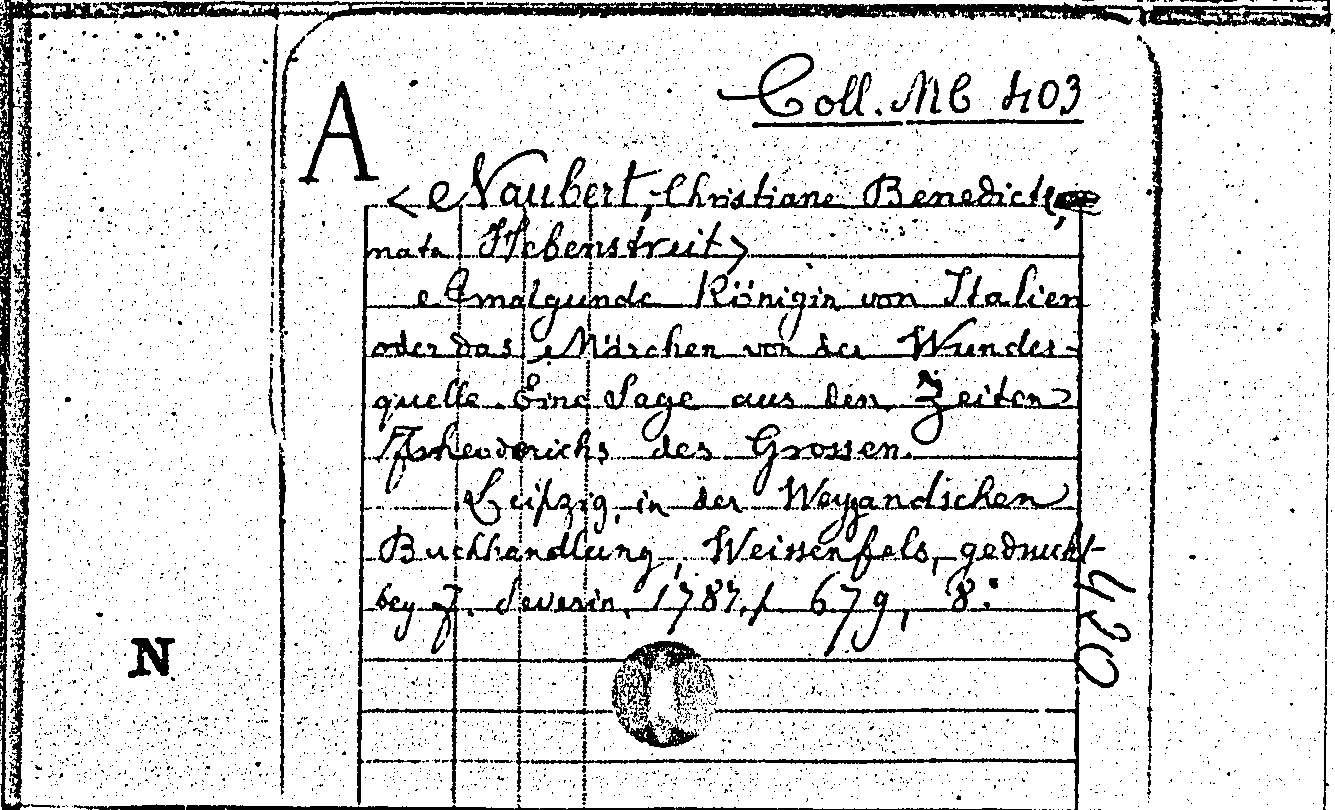 Coll. MC 403
A
<Naubert, Christiane Benedicte,
nata Hebenstreit>
Amalgunde Königin von Italien
oder das Märchen von der Wunder-
quelle. Eine Sage aus den Zeiten
Theoderichs des Grossen.
Leipzig, in der Weygandschen
Buchhandlung, Weissenfels, gedruckt
bey F. Severin, 1787./ 679, 8°
420
N